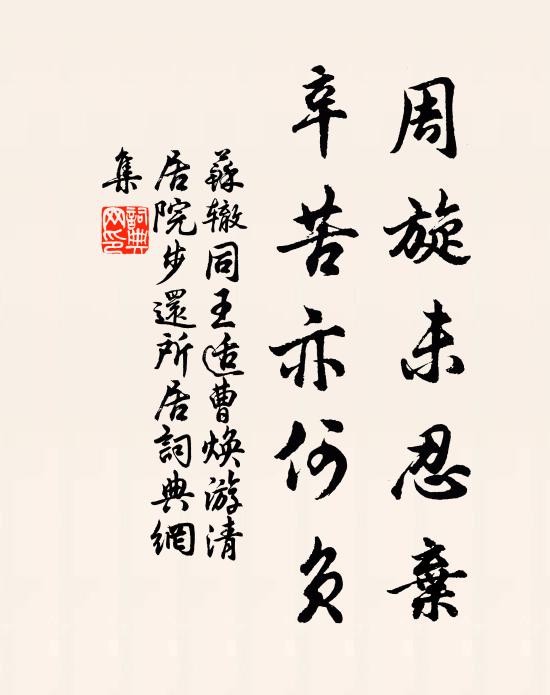 周旋未忍棄
辛苦亦何負
蘇轍同王适曹煥游清
居院步還所居詞典網
集
詞典
网印